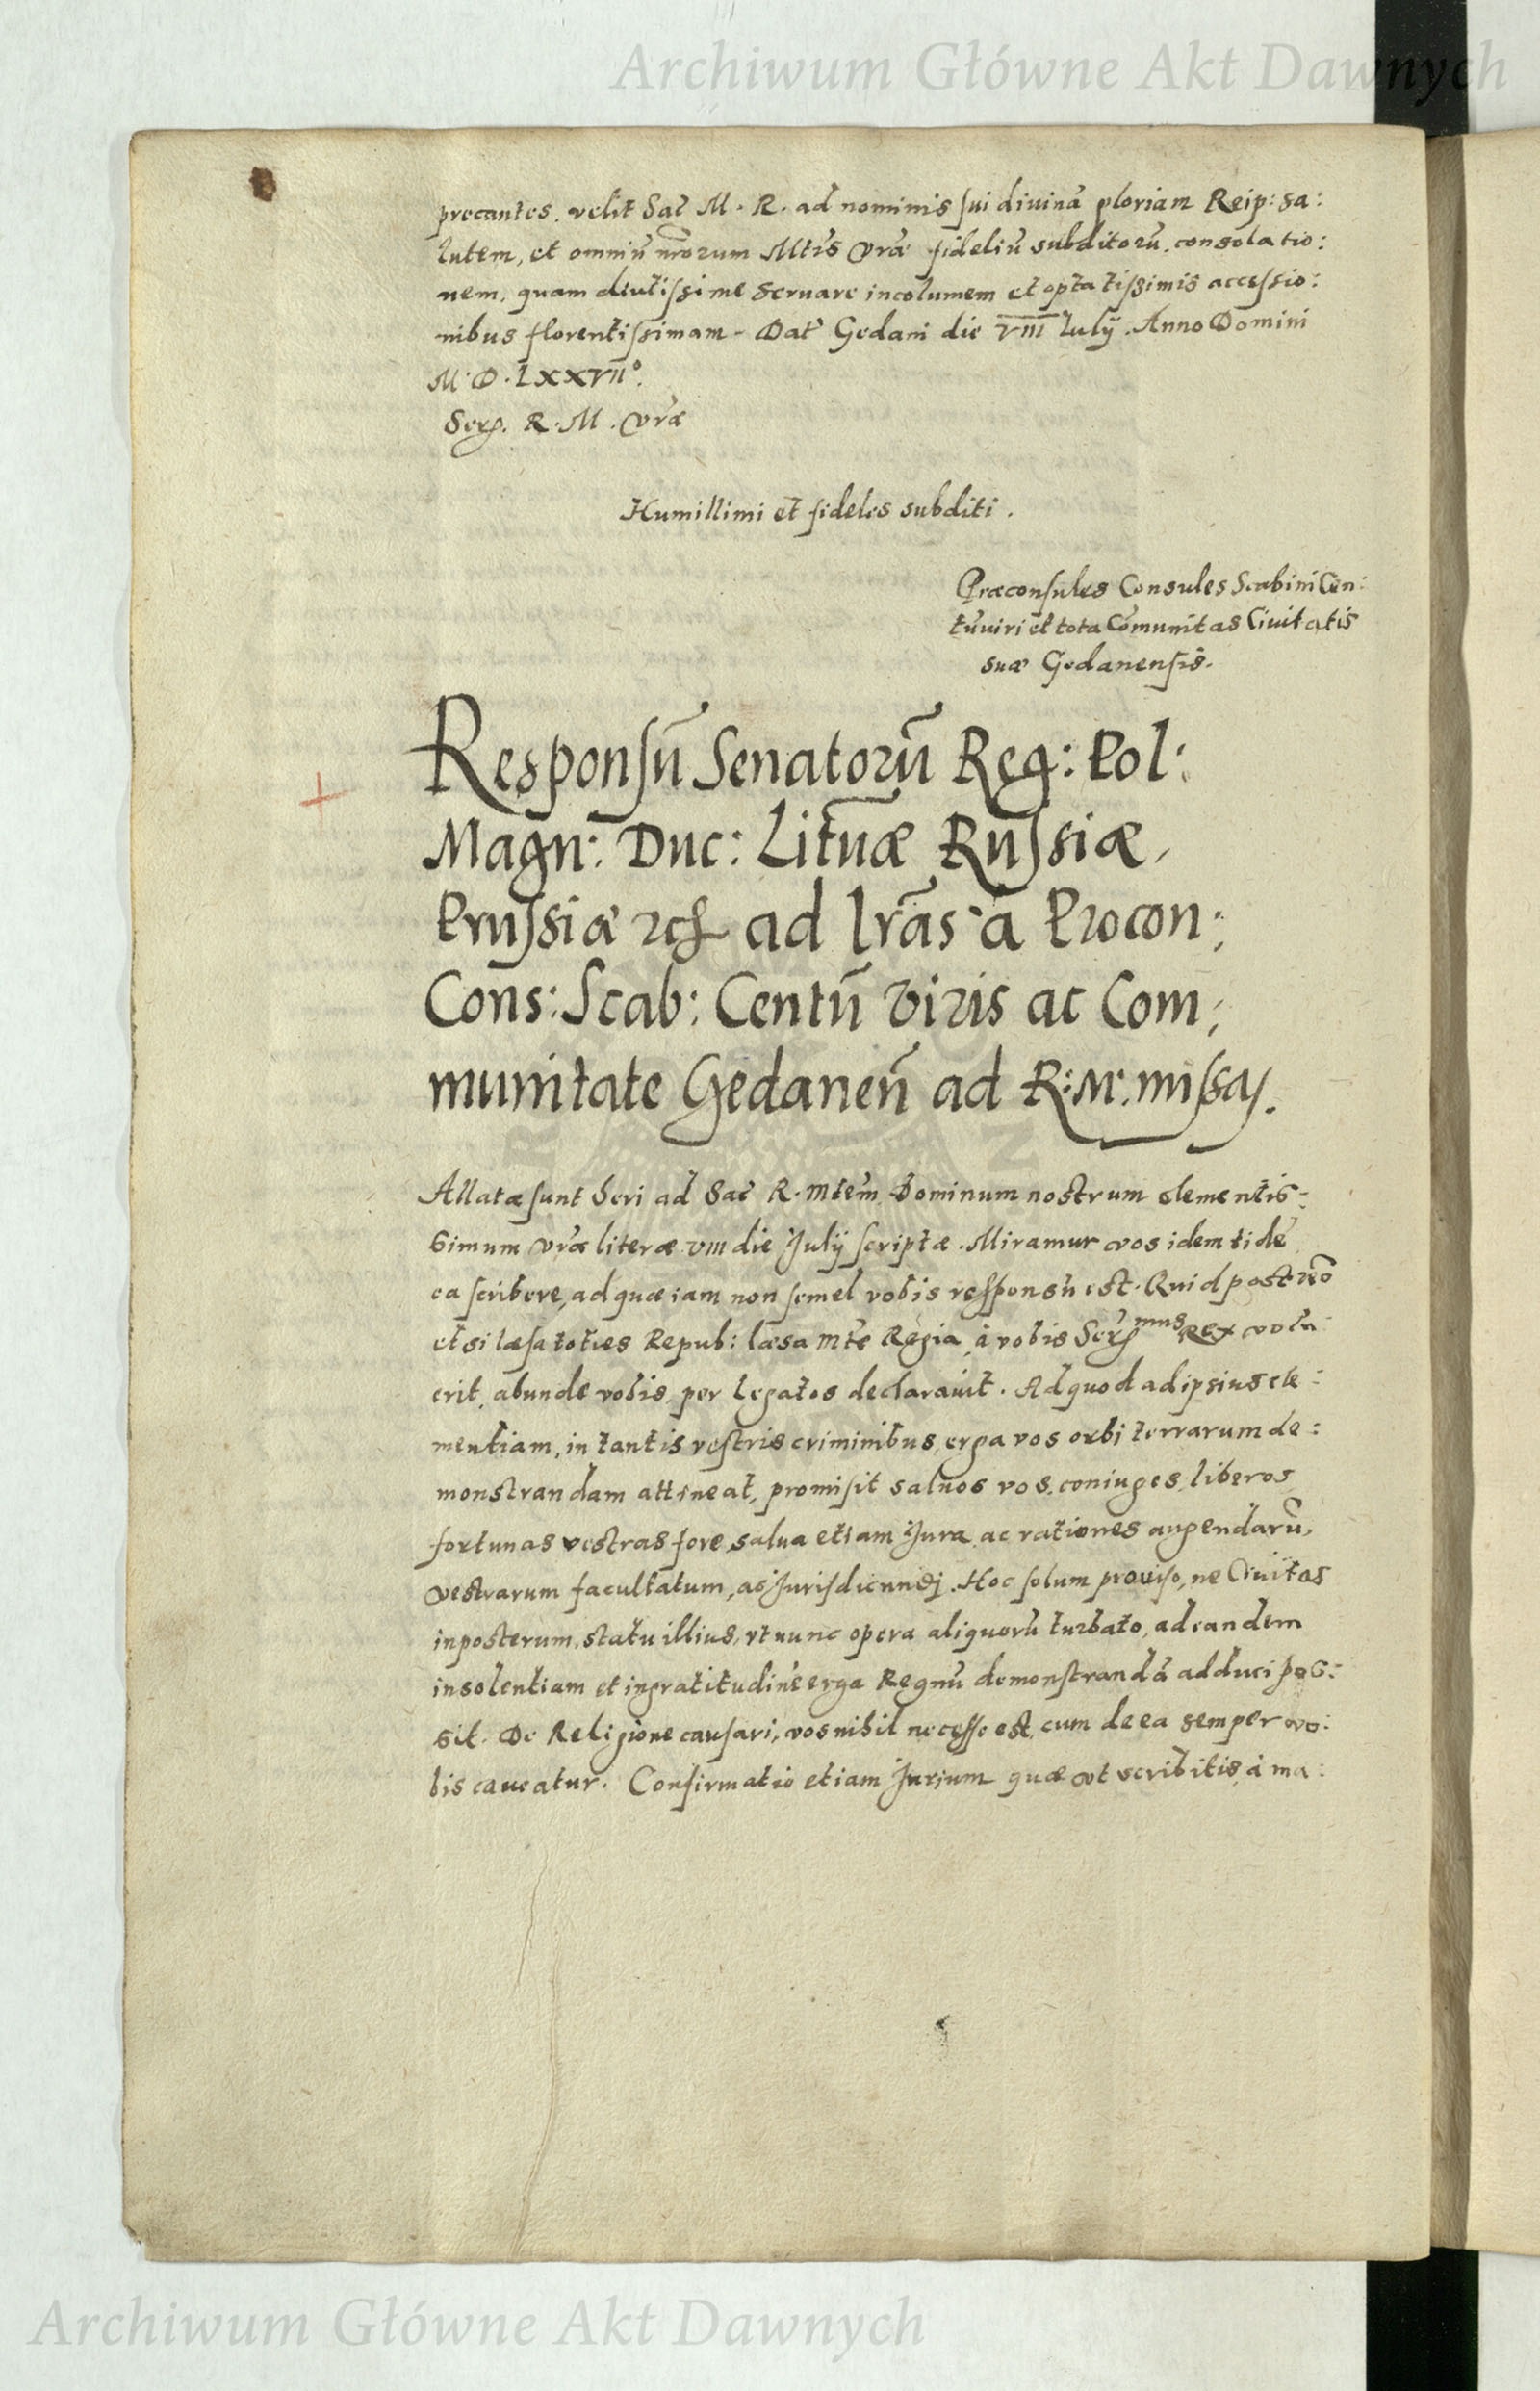 Archiwum Główne Akt Dawnych
precantes. velit Sac̃ M. R. ad nominis sui diuinã gloriam Reip: sa:
lutem, et omniũ nrorum Mtis Vræ fideliũ subditorũ, consolatio:
nem, quam diutissime seruare incolumem et optatissimis accessio:
nibus florentissimam - Dat̃ Gedani die VIII Iulÿ. Anno Domini
M. D. LXXVIIº.
Ser. R. M. Vræ
Humillimi et fideles subditi.
Præconsules Consules Scabini Cen:
tũuiri et tota Cõmunitas Ciuitatis
suæ Gedanensis.
Responsũ Senatorũ Reg: Pol:
Magn: Duc: Lituæ Russiæ,
Prussiæ etc ad lr̃as à Procon:
Cons: Scab: Centũ Viris ac Com:
munitate Gedaneñ ad R: M. missas.
Allatæ sunt heri ad Sac̃ R. Mtem Dominum nostrum clementis:
simum Vræ literæ VIII die Julÿ scriptæ. Miramur vos identidẽ
ea scribere, ad quæ iam non semel vobis responsũ est. Quid postremo
et si læsa toties Repub: læsa Mte Regia à vobis Ser mus Rex volu:
erit, abunde vobis per legatos declarauit. Ad quod ad ipsius cle:
mentiam, in tantis vestris criminibus, erga vos orbi terrarum de:
monstrandam attineat, promisit saluos vos, coniuges, liberos,
fortunas vestras fore, salua etiam Jura ac rationes augendarũ,
vestrarum facultatum, ac Jurisdicundj. Hoc solum prouiso, ne Ciuitas
in posterum, statu illius, vt nunc opera aliquorũ turbato, ad eandem
insolentiam et ingratitudinẽ erga Regnũ demonstrandã adduci pos:
sit. De Religione causari, vos nihil necesse est, cum de ea semper vo:
bis caueatur. Confirmatio etiam Jurium quæ vt scribitis, à ma:
Archiwum Główne Akt Dawnych